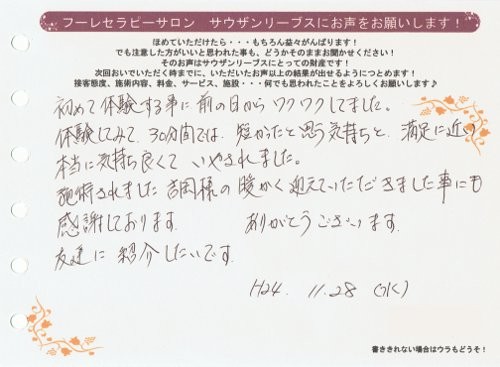 フーレセラピーサロン　サウザンリーブスにお声をお願いします！
ほめていただけたら・・・もちろん益々がんばります！
でも注意した方がいいと思われた事も、どうかそのままお聞かせください！
そのお声はサウザンリーブスにとっての財産です！
次回おいでいただく時までに、いただいたお声以上の結果が出せるようにつとめます！
接客態度、施術内容、料金、サービス、施設・・・何でも思われたことをよろしくお願いします♪
初めて体験する事に前の日からワクワクしてました。
体験してみて、30分間では、短かったと思う気持ちと、満足に近く
本当に気持ち良くて いやされました。
施術されました 吉岡様の 暖かく迎えていただきました事にも
感謝しております。 ありがとうございます。
友達に 紹介したいです。
H24. 11.28 (水)
書ききれない場合はウラもどうぞ！